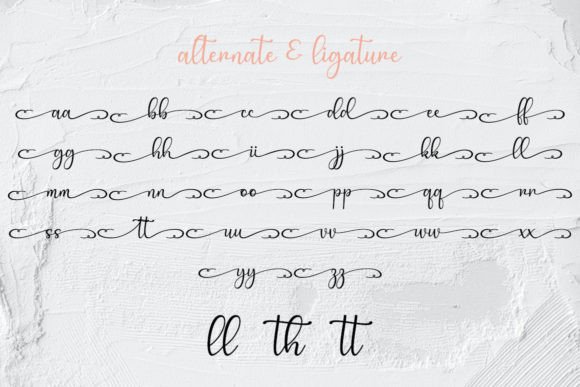 alternate & ligature
aa bb cc dd ee ff
gg hh ii jj kk ll
mm nn oo pp qq rr
ss tt uu vv ww xx
yy zz
ll th tt